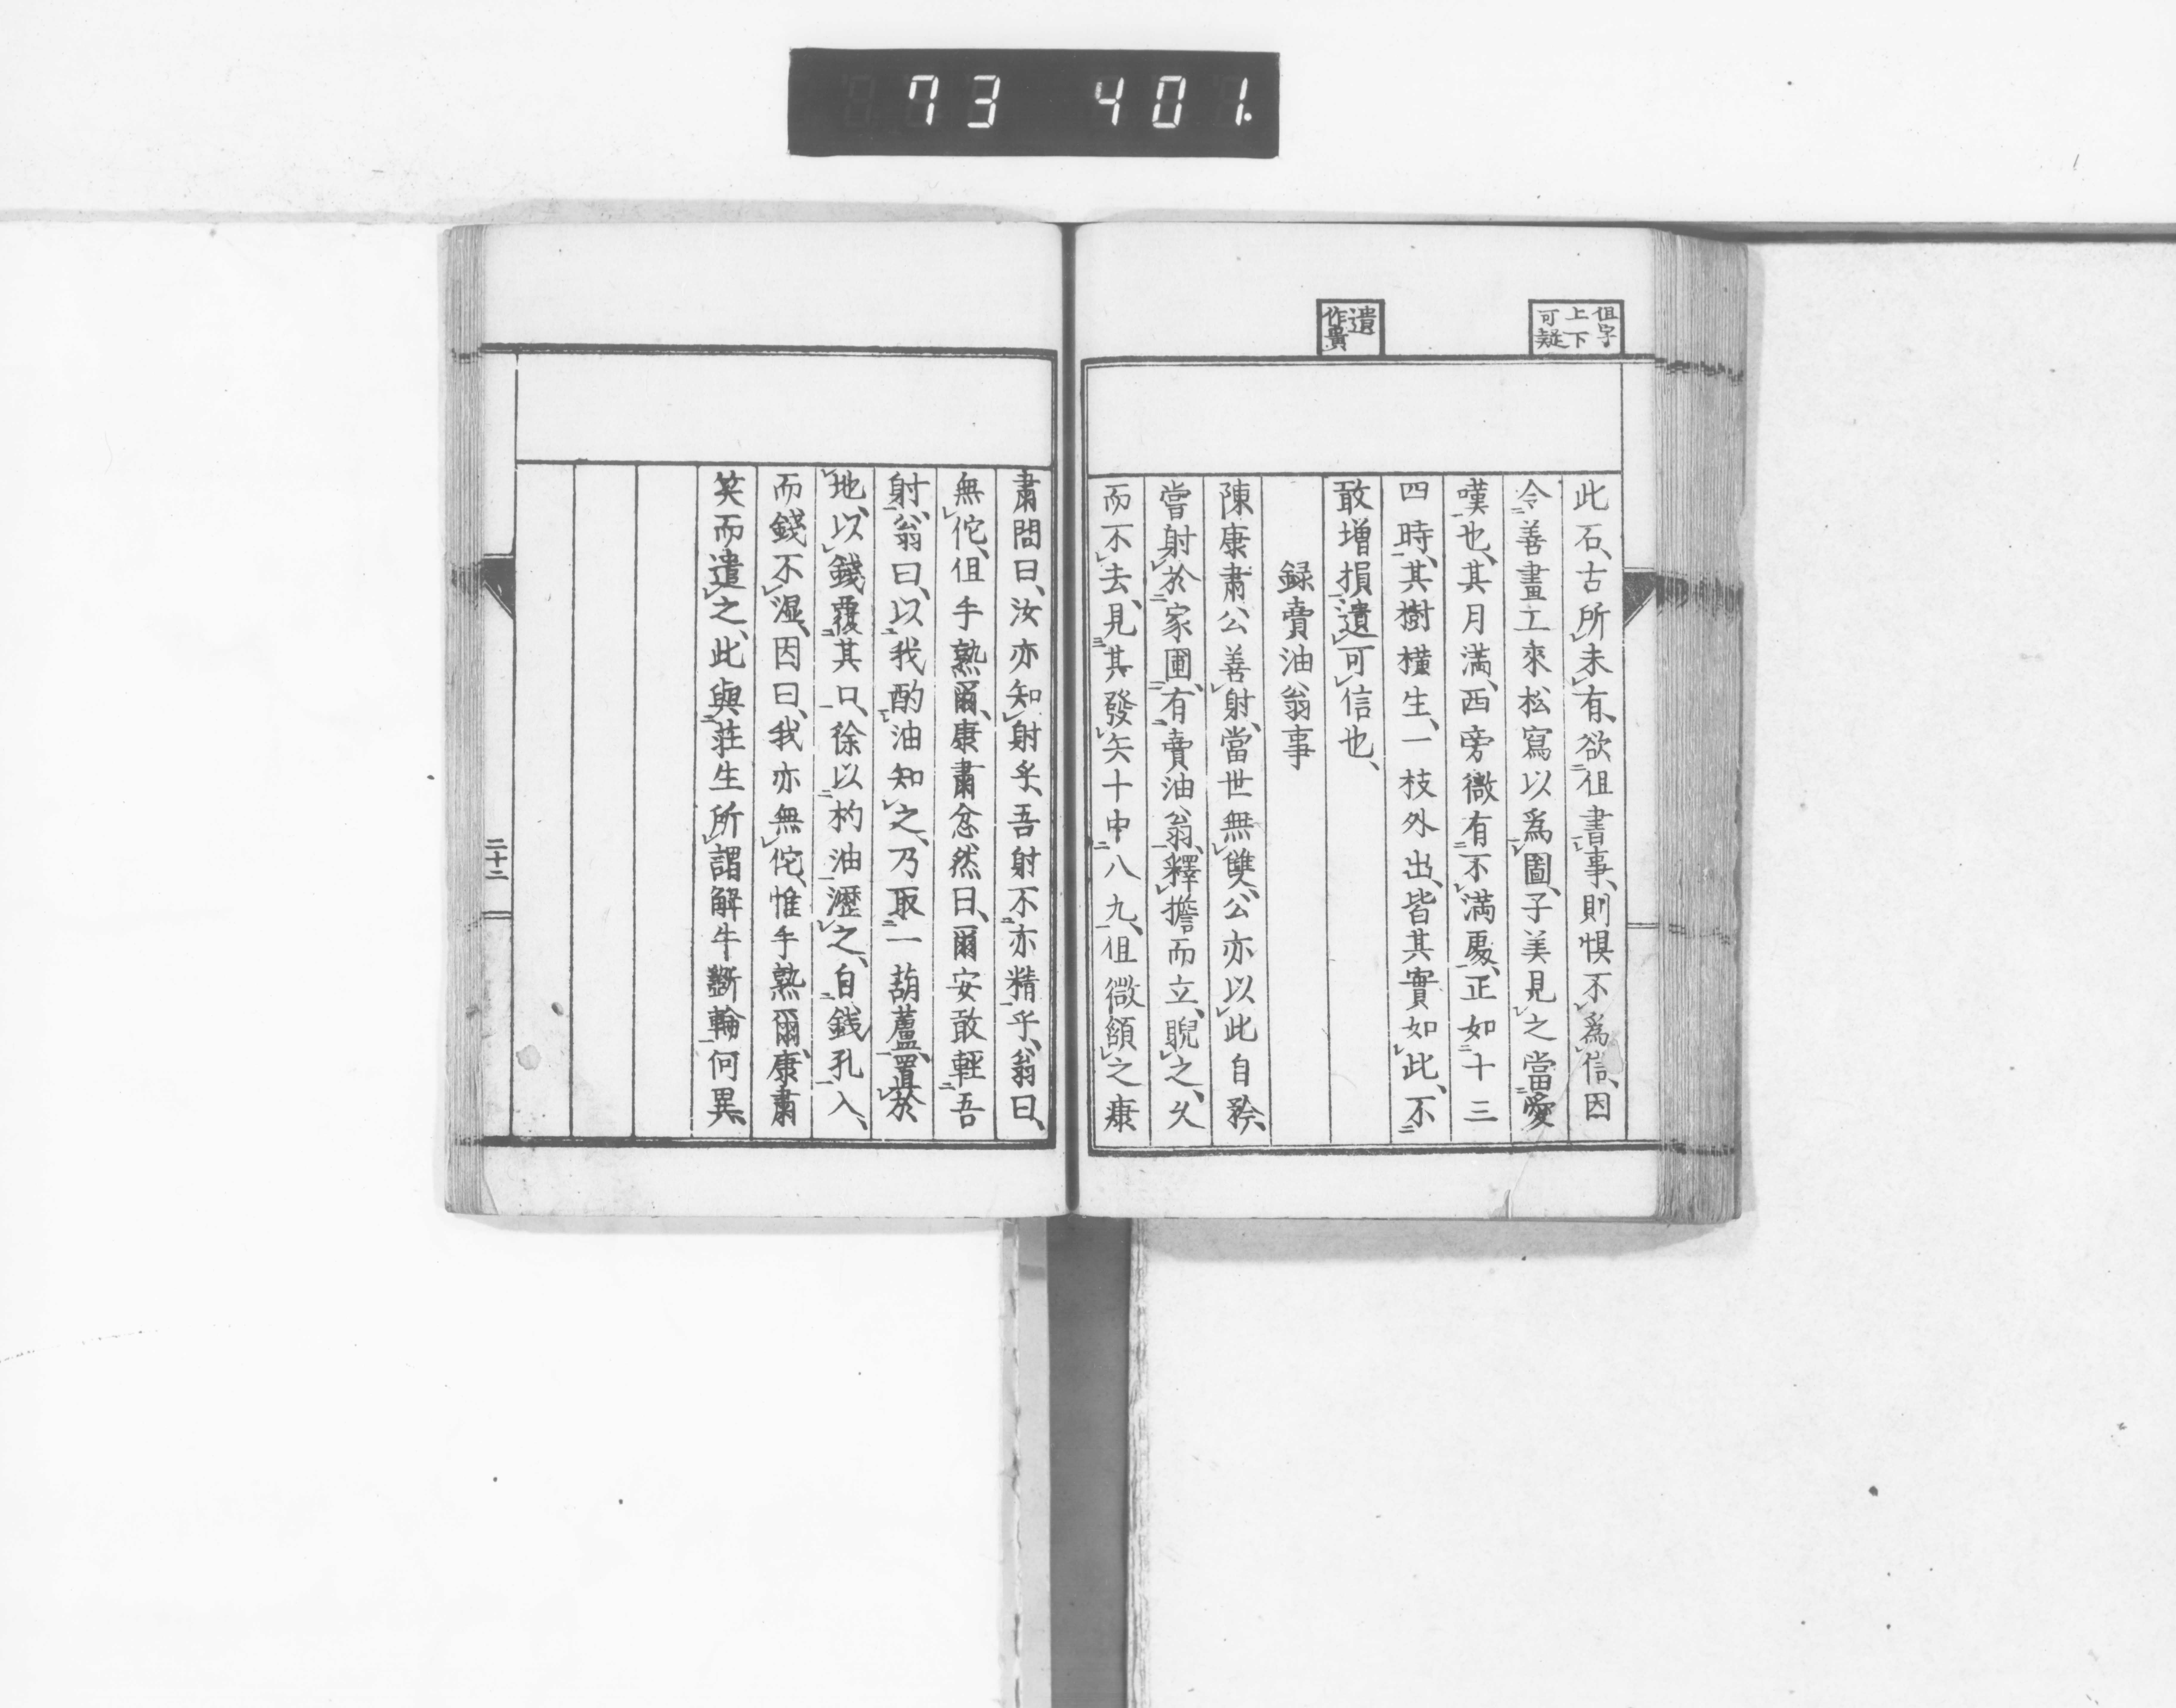 73 401.
徂字
上下
可疑
遺
作貴
此石、古所未有、欲徂書事、則惧不爲信、因
令善畫工來松寫以爲圖、子美見之當愛
嘆也、其月滿、西旁微有不滿處、正如十三
四時、其樹橫生、一枝外出、皆其實如此、不
敢增損、遺可信也、
録賣油翁事
陳康肅公善射、當世無雙、公亦以此自矜、
嘗射於家圃、有賣油翁、釋擔而立、睨之、久
而不去、見其發矢十中八九、徂微頷之康
肅問曰、汝亦知射乎、吾射不亦精乎、翁曰、
無佗、徂手熟爾、康肅忿然曰、爾安敢輕吾
射、翁曰、以我酌油知之、乃取一葫蘆、置於
地、以錢覆其口、徐以杓油瀝之、自錢孔入、
而錢不濕、因曰、我亦無佗、惟手熟爾、康肅
笑而遣之、此與莊生所謂解牛斲輪何異、
二十二